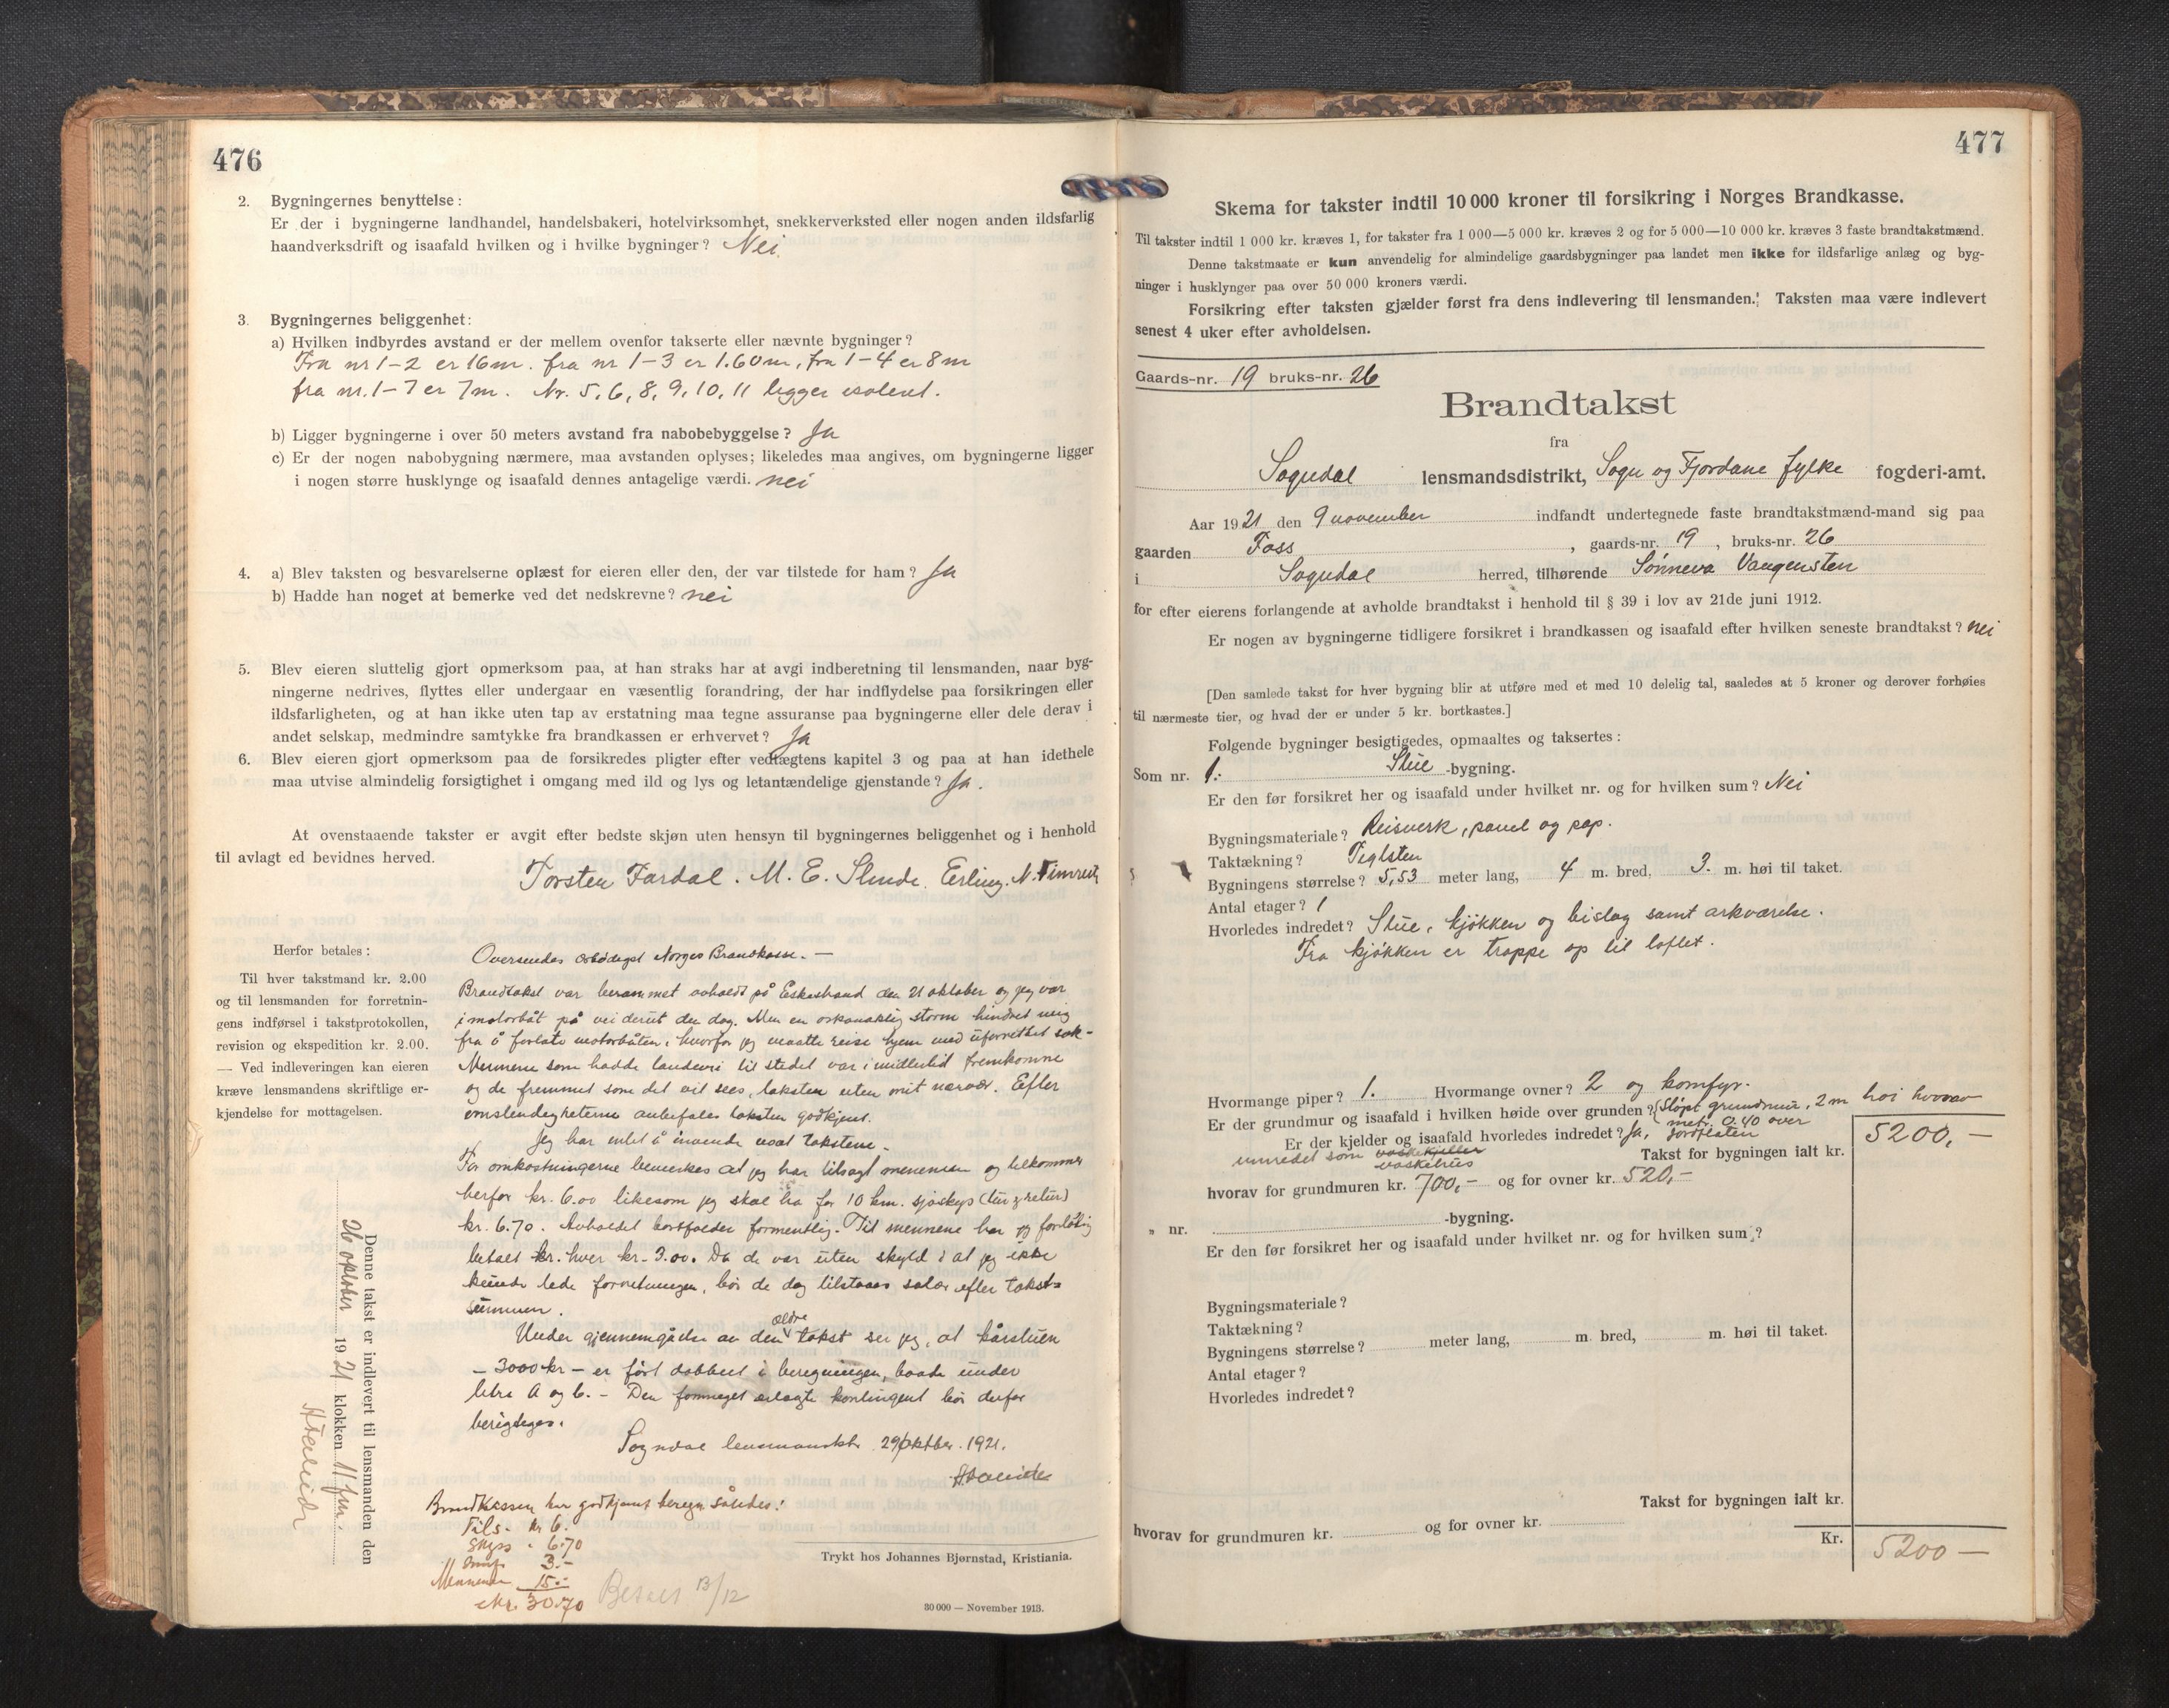 476
2. Bygningernes benyttelse:
Er der i bygningerne landhandel, handelsbakeri, hotelvirksomhet, snekkerverksted eller nogen anden ildsfarlig
haandverksdrift og isaafald hvilken og i hvilke bygninger? Nei.
3. Bygningernes beliggenhet:
a) Hvilken indbyrdes avstand er der mellem ovenfor takserte eller nævnte bygninger?
Fra nr 1-2 er 16m. fra nr 1-3 er 1.60m, fra 1-4 er 8m
fra nr. 1-7 er 7m. Nr. 5, 6, 8, 9, 10, 11 ligger isoleret.
b) Ligger bygningerne i over 50 meters avstand fra nabobebyggelse? Ja
c) Er der nogen nabobygning nærmere, maa avstanden oplyses; likeledes maa angives, om bygningerne ligger
i nogen større husklynge og isaafald dennes antagelige værdi. nei
4. a) Blev taksten og besvarelserne oplæst for eieren eller den, der var tilstede for ham? Ja
b) Hadde han noget at bemerke ved det nedskrevne? nei
5. Blev eieren sluttelig gjort opmerksom paa, at han straks har at avgi indberetning til lensmanden, naar byg-
ningerne nedrives, flyttes eller undergaar en væsentlig forandring, der har indflydelse paa forsikringen eller
ildsfarligheten, og at han ikke uten tap av erstatning maa tegne assuranse paa bygningerne eller dele derav i
andet selskap, medmindre samtykke fra brandkassen er erhvervet? Ja
6. Blev eieren gjort opmerksom paa de forsikredes pligter efter vedtægtens kapitel 3 og paa at han idethele
maa utvise almindelig forsigtighet i omgang med ild og lys og letantændelige gjenstande? Ja.
At ovenstaaende takster er avgit efter bedste skjøn uten hensyn til bygningernes beliggenhet og i henhold
til avlagt ed bevidnes herved.
Torsten Fardal. M. E. Slinde. Erling. N.
Herfor betales:
Til hver takstmand kr. 2.00
og til lensmanden for forretnin-
gens indførsel i takstprotokollen,
revision og ekspedition kr. 2.00.
— Ved indleveringen kan eieren
kræve lensmandens skriftlige er-
kjendelse for mottagelsen.
Oversendes ærbødigst Norges Brandkasse. —
Brandtakst var berammet avholdt på Eskestrand den 21 oktober og jeg var
i motorbåt på vei derut den dag. Men en orkanaktig storm hindret mig
fra å forlate motorbåten, hvorfor jeg maatte reise hjem med uforrettet sak-
Mennene som hadde landevei til stedet var imidlertid fremkomne
og de fremmet som det vil sees, taksten uten mit nærvær. Efter
omstendigheterne anbefales taksten godkjent.
Jeg har intet å invende mot takstene.
For omkostningerne bemerkes at jeg har tilsagt mennene og tilkommer
herfor kr. 6.00 likesom jeg skal ha for 10 km. sjøskyss (tur & retur)
kr. 6.70. Avholdet bortfalder formentlig. Til mennene har jeg foreløbig
betalt kr. hver kr. 3.00. Da de var uten skyld i at jeg ikke
kunde lede forretningen, bør de dog tilstaaes salær efter takst-
summen.
Under gjennemgåelse av den ældre takst ser jeg, at kårstuen
- 3000 kr - er ført dobbelt i beregningen, baade under
litra A og b. - Den formeget erlagte kontingent bør derfor
berigtiges.
Sogndal lensmanskt. 29 oktber. 1921.
Brandkassen har godkjent beregn således:
Tils. kr 6.
Skyss " 6.70
3.-
Mennene 15.-
Kr. 30.70
Betalt 13/12
Denne takst er indlevert til lensmanden den
26 oktober 1921 klokken 11 fm.
Trykt hos Johannes Bjørnstad, Kristiania.
30 000 — November 1913.
477
Skema for takster indtil 10 000 kroner til forsikring i Norges Brandkasse.
Til takster indtil 1 000 kr. kræves 1, for takster fra 1 000—5 000 kr. kræves 2 og for 5 000—10 000 kr. kræves 3 faste brandtakstmænd.
Denne takstmaate er kun anvendelig for almindelige gaardsbygninger paa landet men ikke for ildsfarlige anlæg og byg-
ninger i husklynger paa over 50 000 kroners værdi.
Forsikring efter taksten gjælder først fra dens indlevering til lensmanden. Taksten maa være indlevert
senest 4 uker efter avholdelsen.
Gaards-nr. 19 bruks-nr. 26
Brandtakst
fra
Sogndal lensmandsdistrikt, Sogn og Fjordane fylke fogderi-amt.
Aar 1921 den 9 november indfandt undertegnede faste brandtakstmænd-mand sig paa
gaarden Foss, gaards-nr. 19, bruks-nr. 26
i Sogndal herred, tilhørende Sønneva Vangensten
for efter eierens forlangende at avholde brandtakst i henhold til § 39 i lov av 21de juni 1912.
Er nogen av bygningerne tidligere forsikret i brandkassen og isaafald efter hvilken seneste brandtakst? nei
[Den samlede takst for hver bygning blir at utføre med et med 10 delelig tal, saaledes at 5 kroner og derover forhøies
til nærmeste tier, og hvad der er under 5 kr. bortkastes.]
Følgende bygninger besigtigedes, opmaaltes og taksertes:
Som nr. 1. Stue -bygning.
Er den før forsikret her og isaafald under hvilket nr. og for hvilken sum? Nei
Bygningsmateriale? Reisverk, panel og pap.
Taktækning? Teglsten
Bygningens størrelse? 5,53 meter lang, 4 m. bred, 3. m. høi til taket.
Antal etager? 1
Hvorledes indredet? Stue, kjøkken og bislag samt arkværelse.
Fra kjøkken er trappe op til loftet.
Hvormange piper? 1. Hvormange ovner? 2 og komfyr.
Er der grundmur og isaafald i hvilken høide over grunden? Støpt grundmur, 2 m høi hvorav
metr. 0.40 over
jordflaten
Er der kjelder og isaafald hvorledes indredet? Ja,
innredet som vaskekjeller
vaskehus
Takst for bygningen ialt kr. 5200,—
hvorav for grundmuren kr. 700,— og for ovner kr. 520,—
" nr. -bygning.
Er den før forsikret her og isaafald under hvilket nr. og for hvilken sum?
Bygningsmateriale?
Taktækning?
Bygningens størrelse? meter lang, m. bred, m. høi til taket.
Antal etager?
Hvorledes indredet?
Takst for bygningen ialt kr.
hvorav for grundmuren kr. og for ovner kr.
Kr. 5200 —